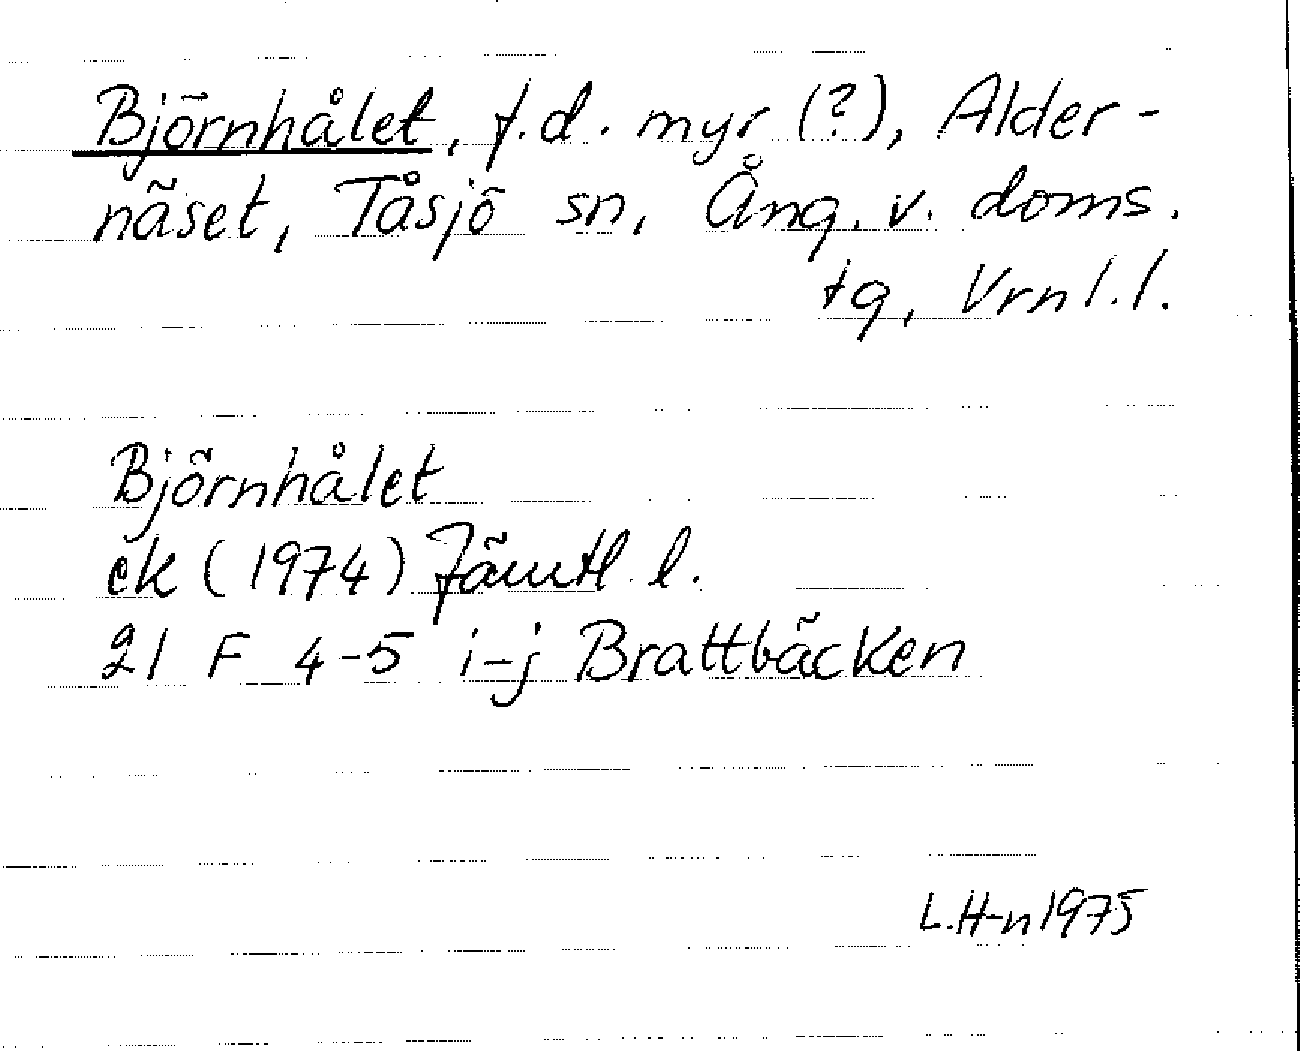 Björnhålet, f.d. myr (?), Alder-
näset, Tåsjö sn, Ång. v. doms.
tg, Vrnl. l.
Björnhålet
ek (1974) Jämtl. l.
21 F 4-5 i-j Brattbäcken
L.H-n 1975